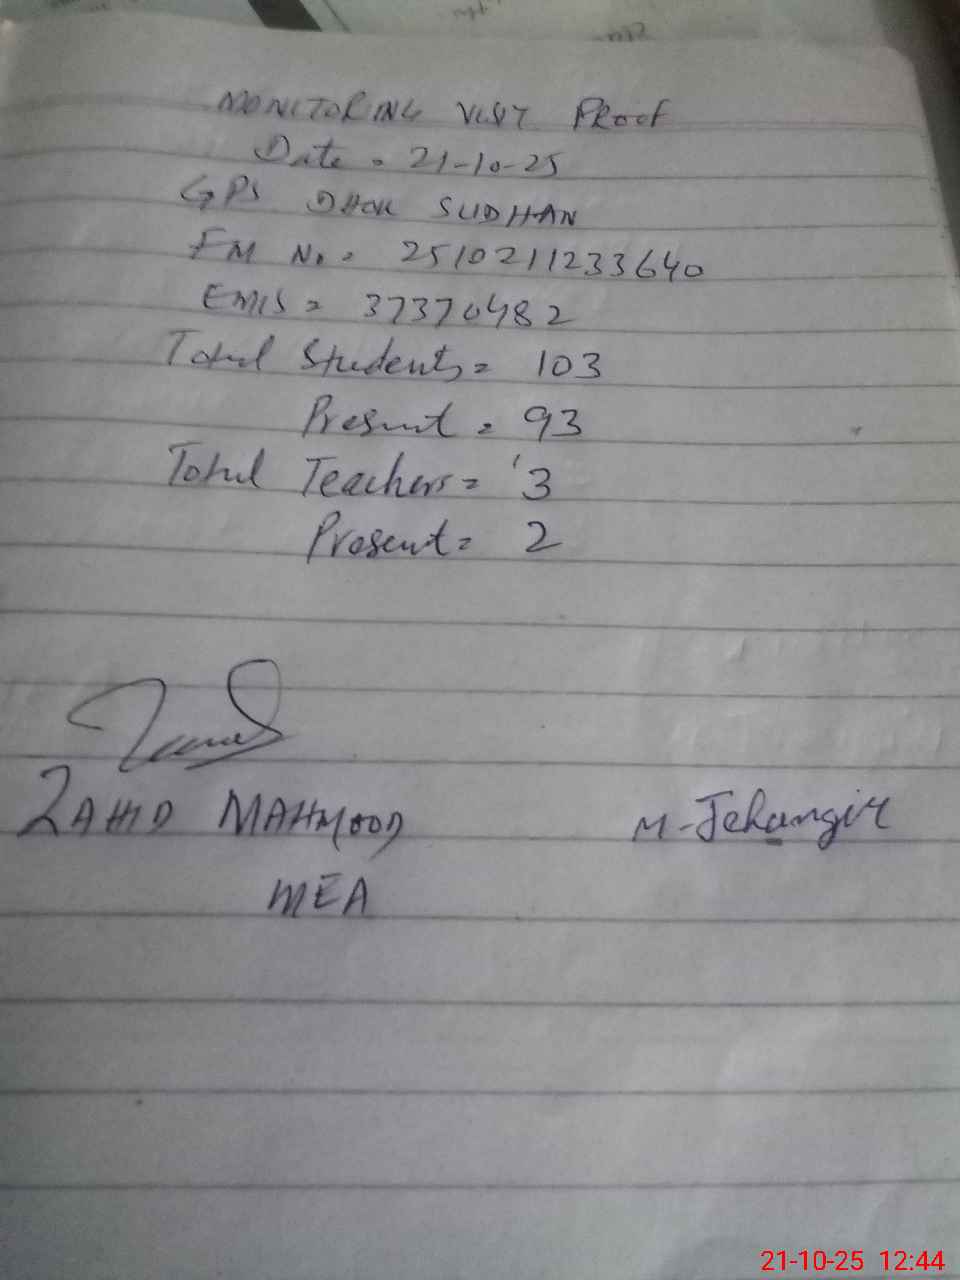 MONITORING VISIT PROOF
Date = 21-10-25
GPS DHOK SUDHAN
FM No. = 2510211233640
EMIS = 37370482
Total Students = 103
Present = 93
Total Teachers = 3
Present = 2
ZAHID MAHMOOD
M-Jehangir
MEA
21-10-25 12:44